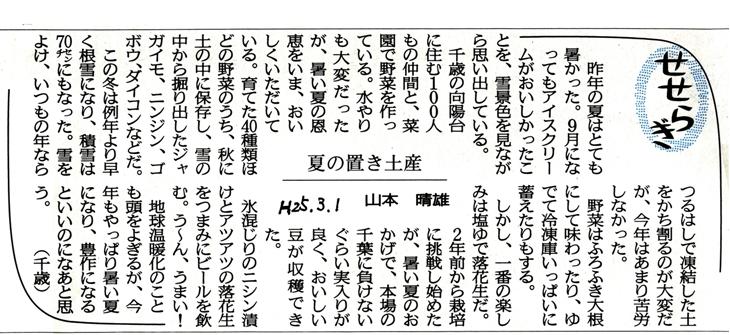 せせらぎ
夏の置き土産
山本　晴雄
H25.3.1
　昨年の夏はとても
暑かった。９月にな
ってもアイスクリー
ムがおいしかったこ
とを、雪景色を見なが
ら思い出している。
　千歳の向陽台
に住む１００人
もの仲間と、菜
園で野菜を作っ
ている。水やり
も大変だった
が、暑い夏の恩
恵をいま、おい
しくいただいて
いる。育てた40種類ほ
どの野菜のうち、秋に
土の中に保存し、雪の
中から掘り出したジャ
ガイモ、ニンジン、ゴ
ボウ、ダイコンなどだ。
　この冬は例年より早
く根雪になり、積雪は
70㌢にもなった。雪を
よけ、いつもの年なら
つるはしで凍結した土
をかち割るのが大変だ
が、今年はあまり苦労
しなかった。
　野菜はふろふき大根
にして味わったり、ゆ
でて冷凍庫いっぱいに
蓄えたりもする。
　しかし、一番の楽し
みは塩ゆで落花生だ。
２年前から栽培
に挑戦し始めた
が、暑い夏のお
かげで、本場の
千葉に負けない
ぐらい実入りが
良く、おいしい
豆が収穫でき
た。
　氷混じりのニシン漬
けとアツアツの落花生
をつまみにビールを飲
む。う～ん、うまい！
　地球温暖化のこと
も頭をよぎるが、今
年もやっぱり暑い夏
になり、豊作になる
といいのになあと思
う。　　（千歳）